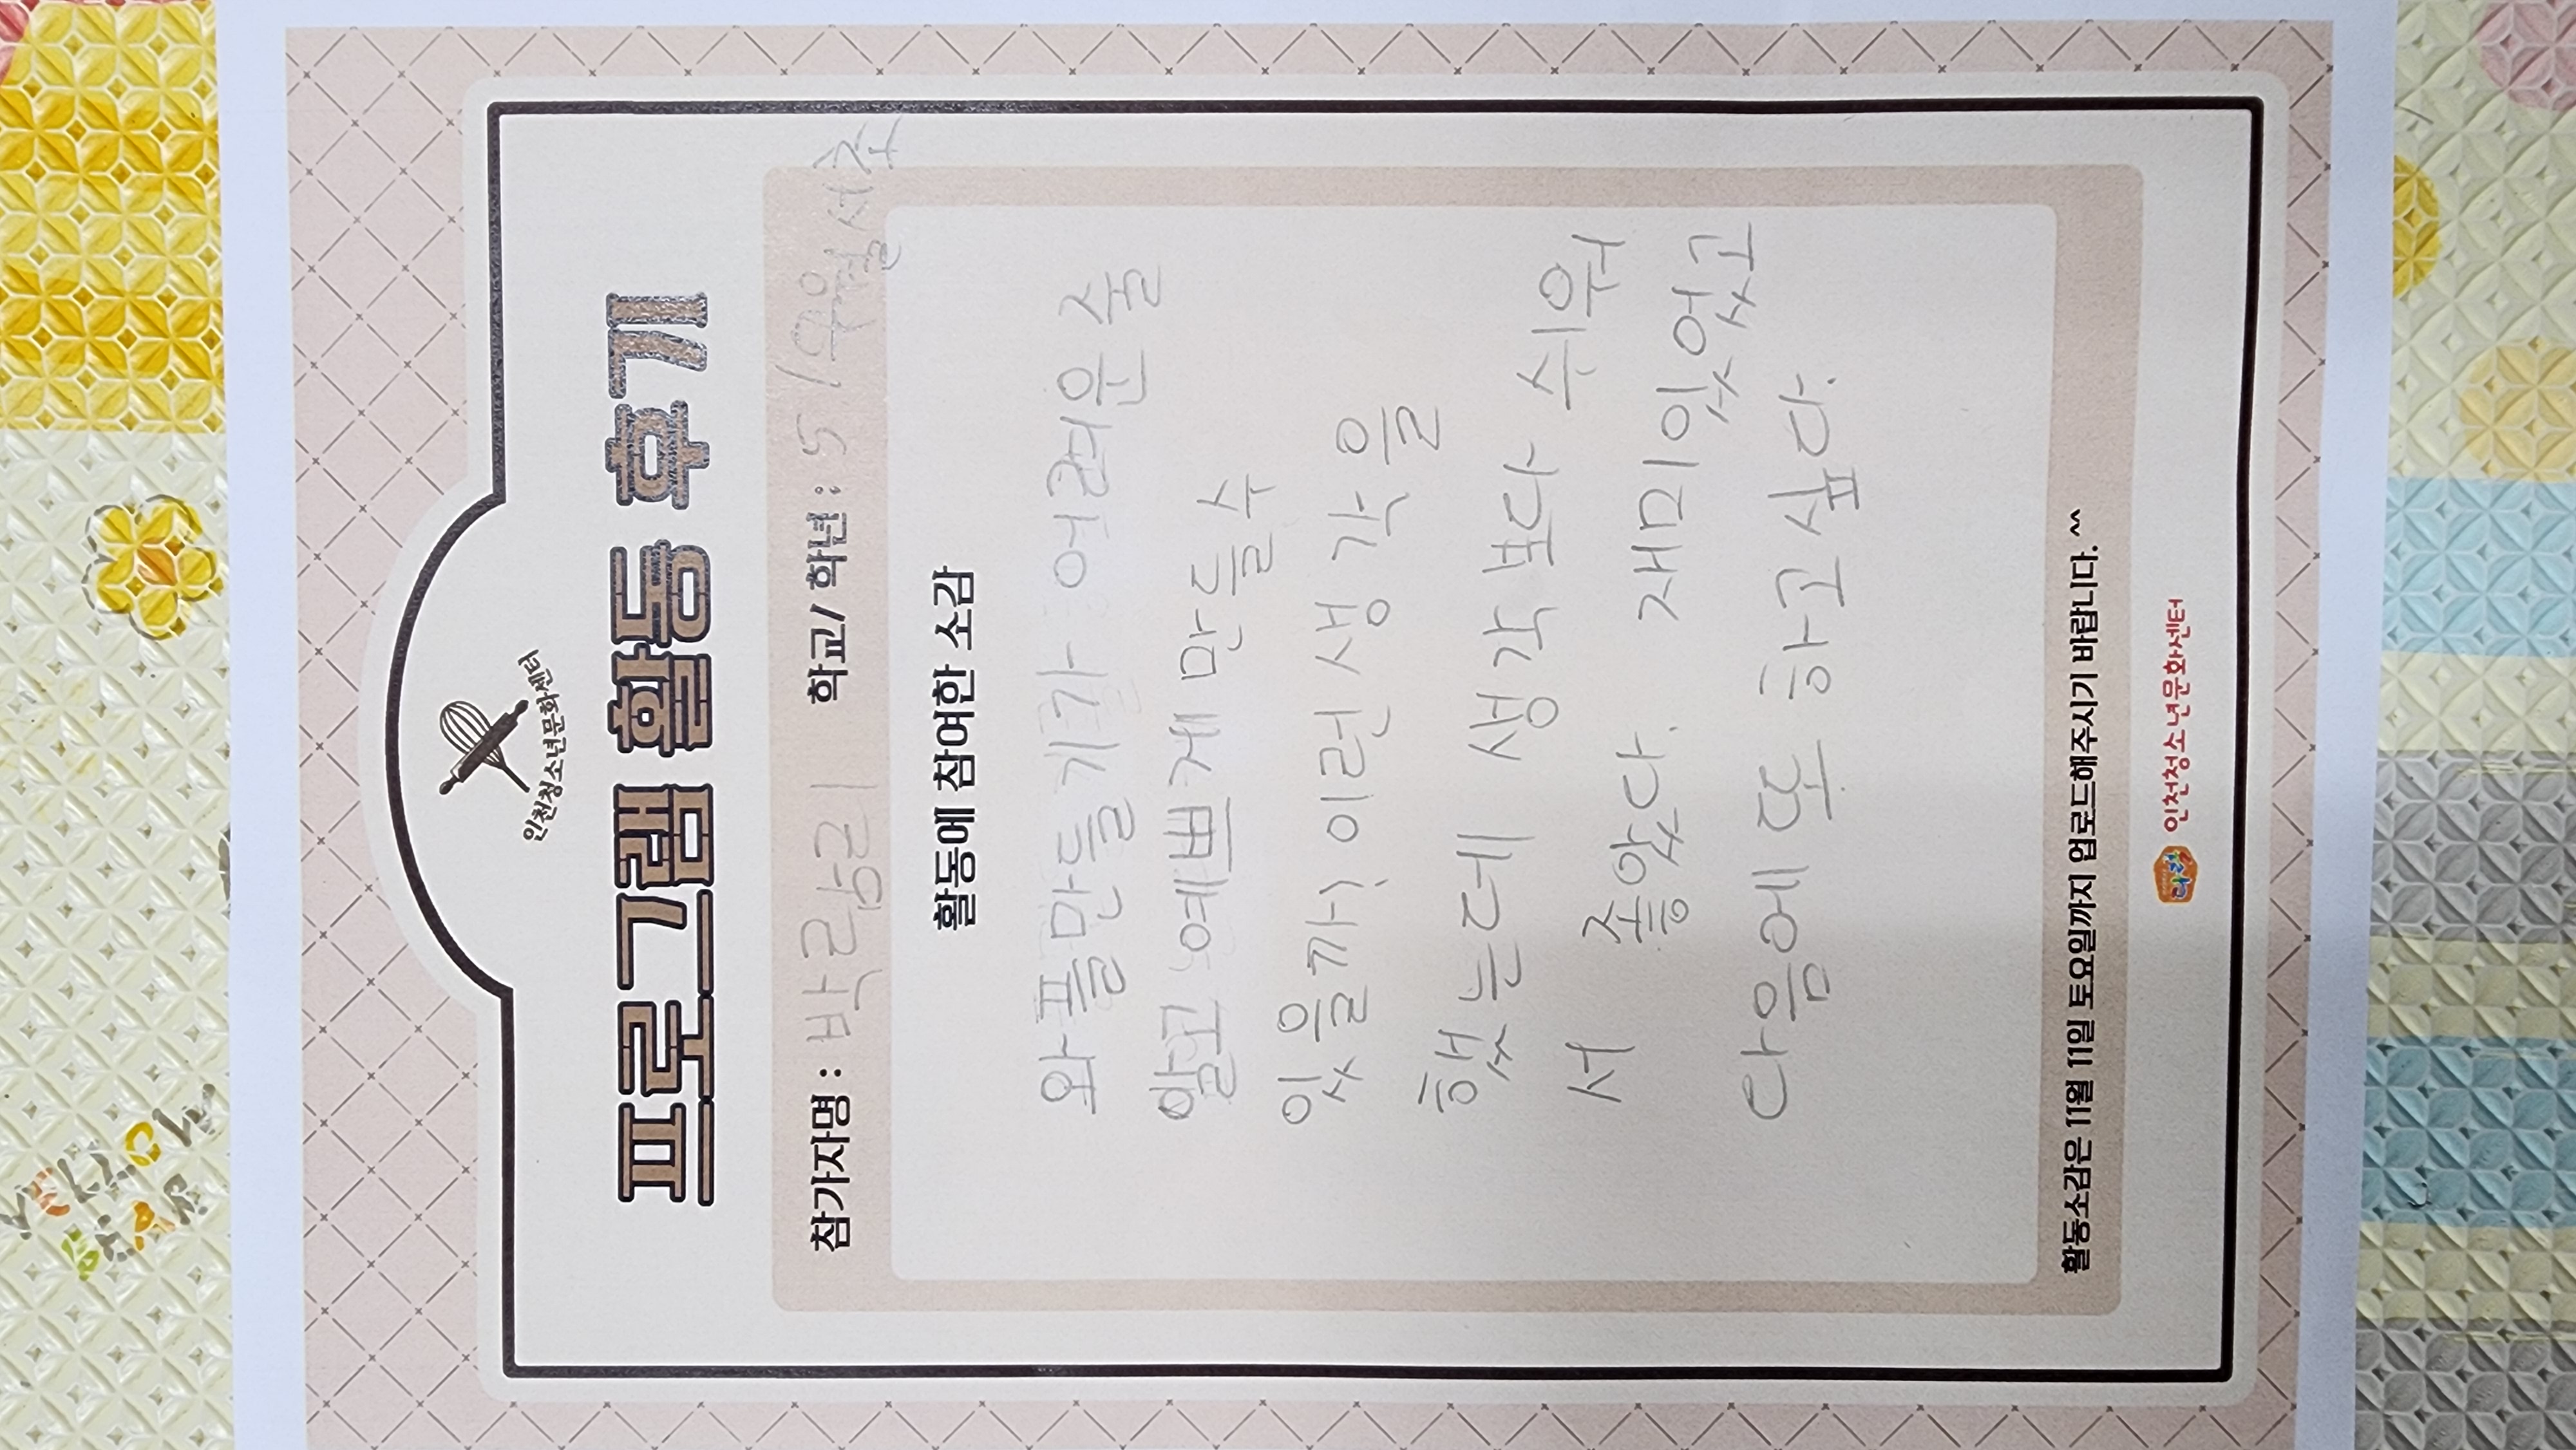 인천청소년문화센터
프로그램 활동 후기
참가자명 : 박라희 학교/ 학년 : 5 / 구월서초
활동에 참여한 소감
와플만들기가 어려운 줄
알고 예쁘게 만들수
있을까? 이런생각을
했는데 생각보다 쉬워
서 좋았다. 재미있었고
다음에 또 하고싶다.
활동소감은 11월 11일 토요일까지 업로드해주시기 바랍니다. ^^
인천청소년문화센터